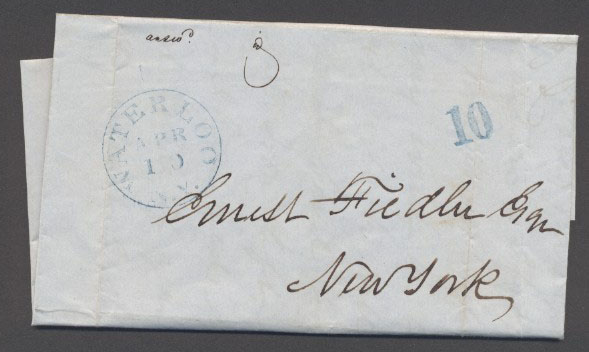 answd.
WATERLOO
APR
10
N.Y.
10
Ernest Fiedler Esqr
New York